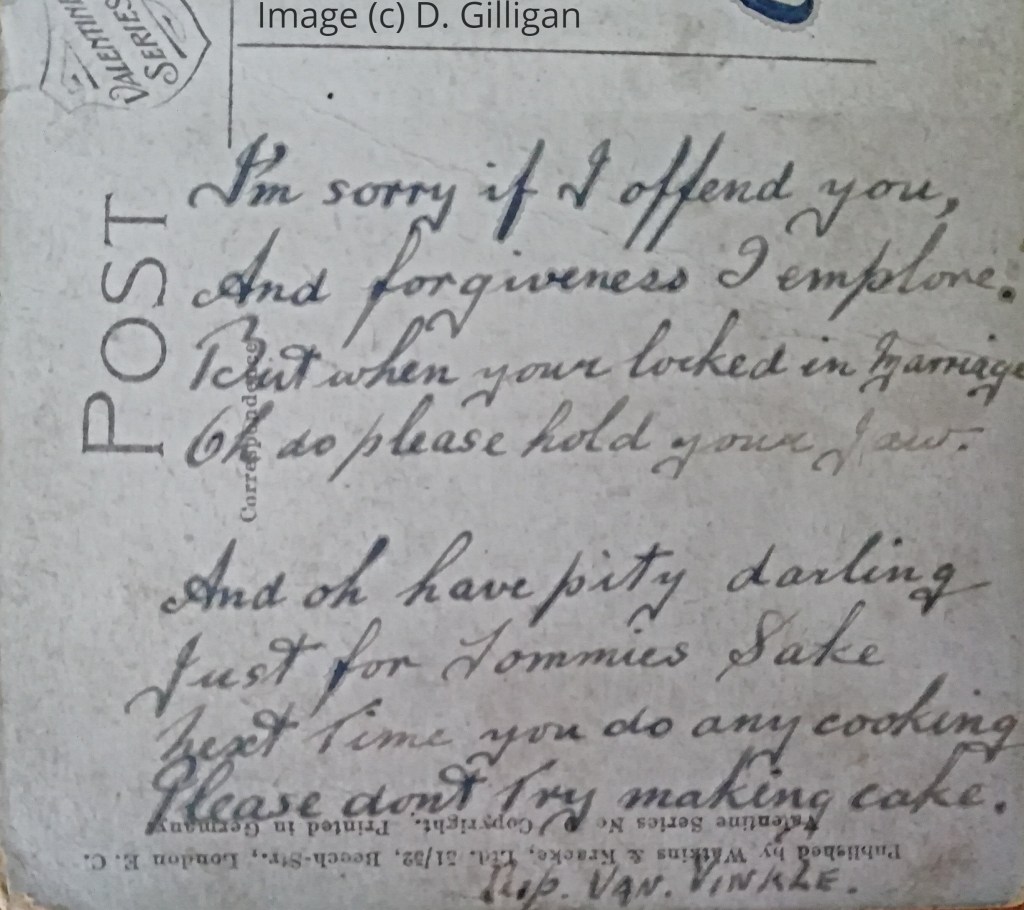 Image (c) D. Gilligan
VALENTINE
SERIES
POST
Correspondence
I'm sorry if I offend you,
And forgiveness I emplore.
But when your locked in Marriage
Oh do please hold your Jaw.
And oh have pity darling
Just for Tommies Sake
Next Time you do any cooking
Please dont Try making cake.
Valentine Series No Copyright. Printed in Germany
Published by Watkins & Kracke, Ltd. 51/52, Beech-Str., London E.C.
Rip. VAN. VINKLE.